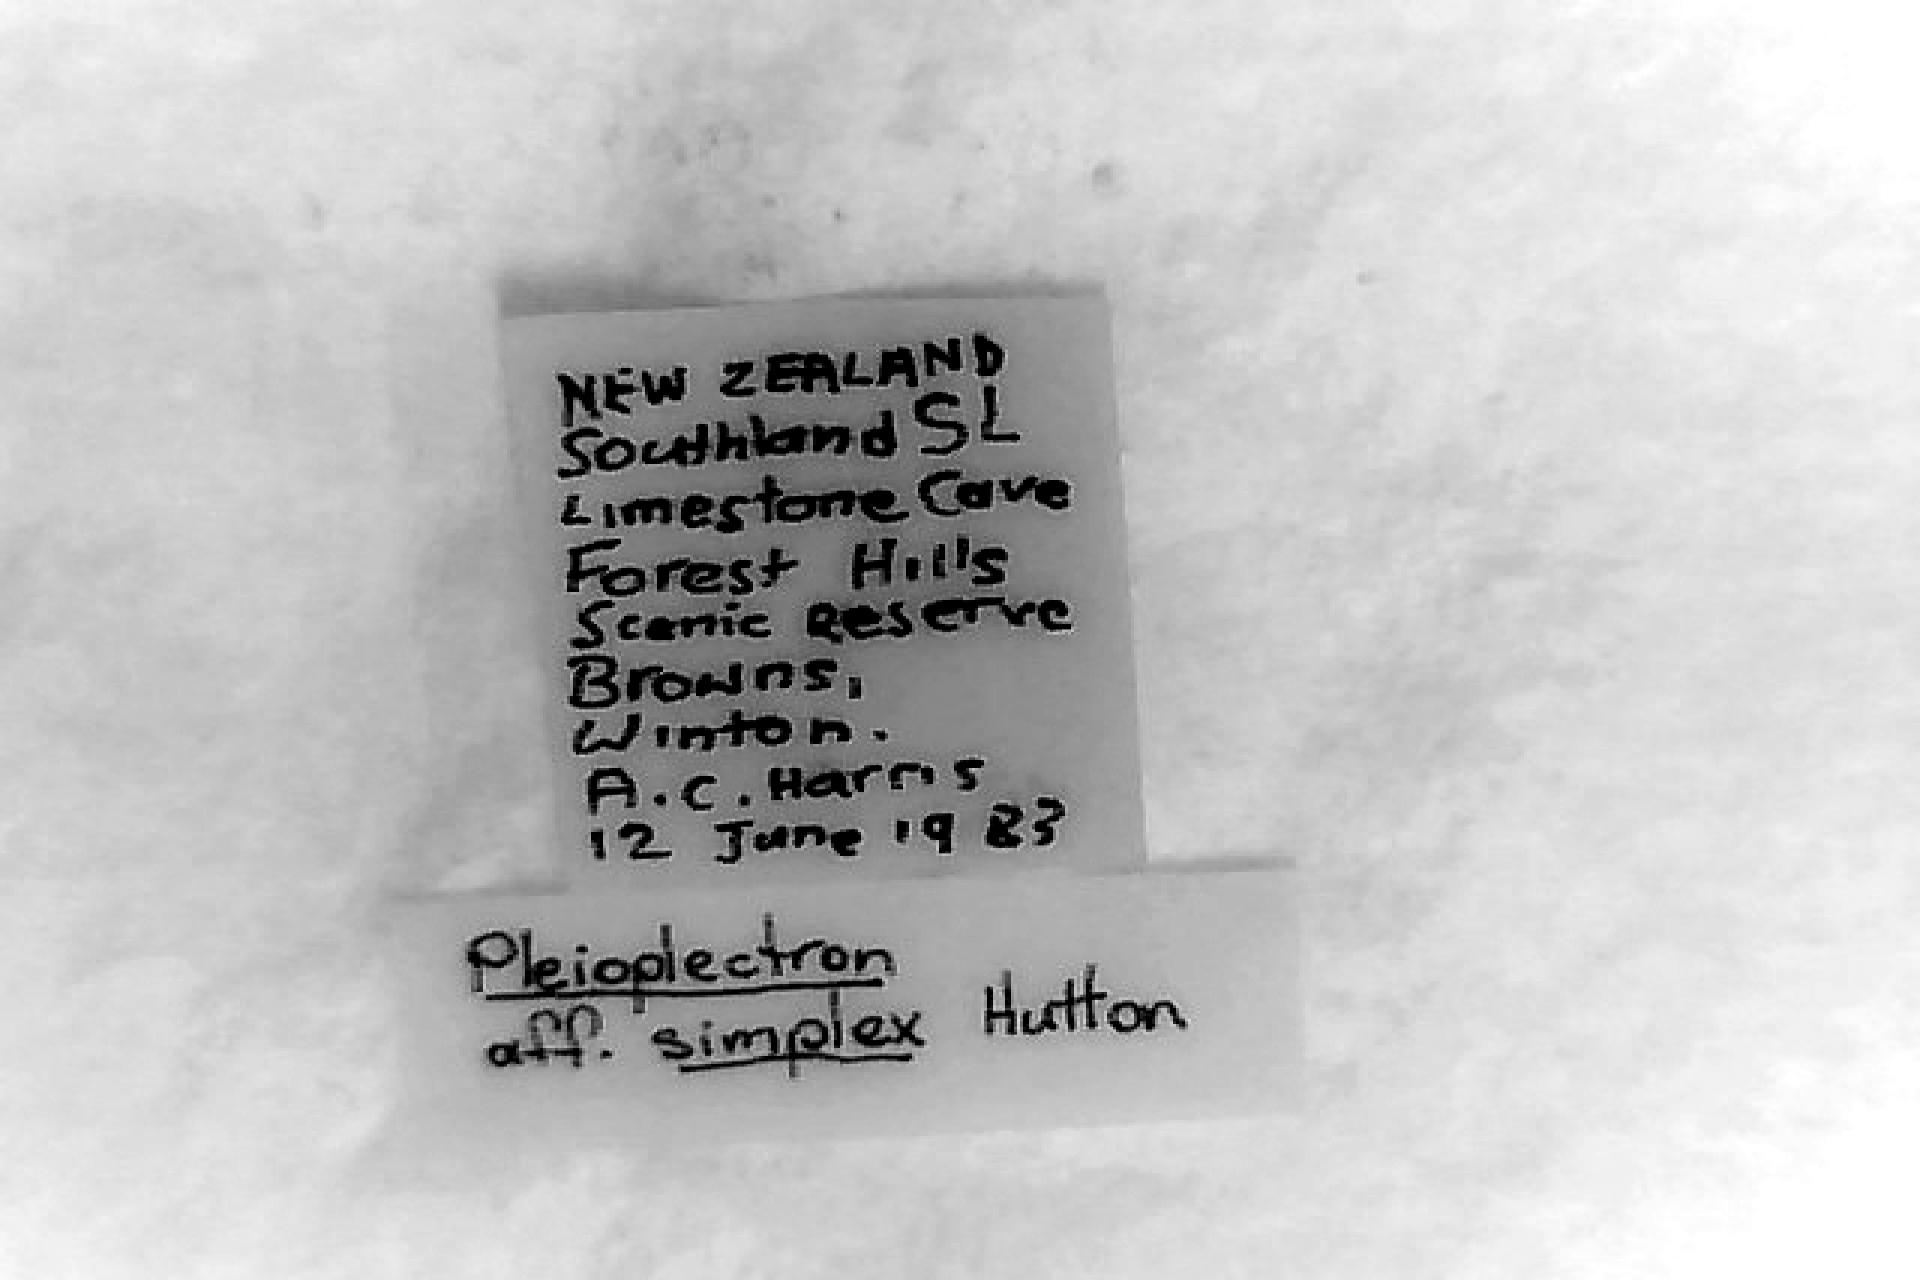 NEW ZEALAND
Southland SL
Limestone Cave
Forest Hills
Scenic Reserve
Browns,
Winton.
A.C. Harris
12 June 1983
Pleioplectron
aff. simplex Hutton